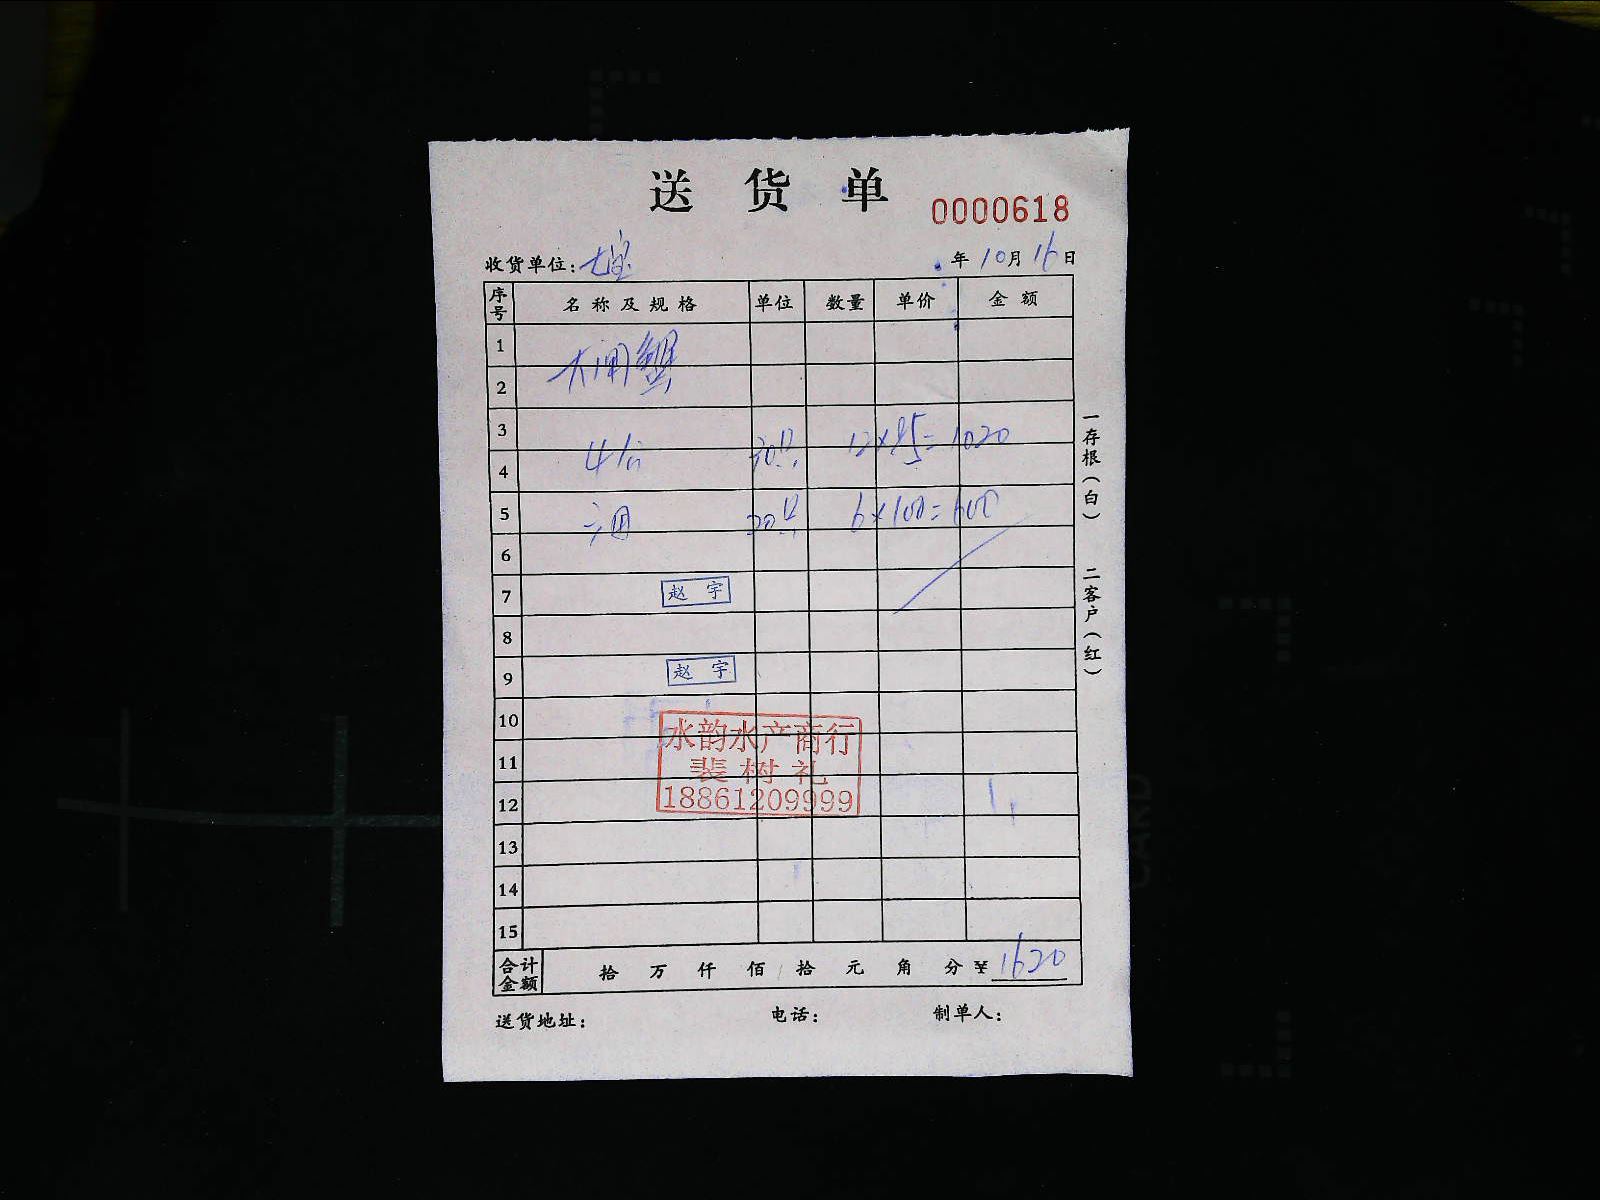 送 货 单
0000618
收货单位: 七宝 年 10月 16日
序号 名称及规格 单位 数量 单价 金额
1
大闸蟹
2
3
4 30只 12×85=1020
5 20只 6×100=600
6
7 赵 宇
8
9 赵 宇
10
水韵水产商行
11
裴 树 礼
12
18861209999
13
14
15
合计金额 拾 万 仟 佰 拾 元 角 分 ¥ 1620
送货地址: 电话: 制单人:
一存根(白) 二客户(红)